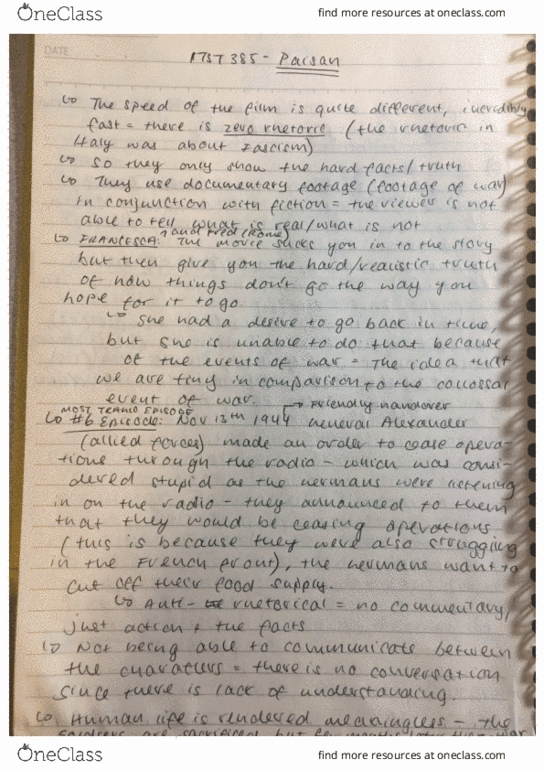 OneClass
find more resources at oneclass.com
DATE
ITST 385 - Paisan
↳ The speed of the film is quite different, incredibly
fast = there is zero rhetoric (the rhetoric in
Italy was about Fascism)
↳ so they only show the hard facts/truth
↳ They use documentary footage (footage of war)
in conjunction with fiction = the viewer is not
able to tell what is real/what is not
↳ FRANCESCA: ^ and Fred (Rome) The movie sucks you in to the story
but then give you the hard/realistic truth
of how things don't go the way you
hope for it to go.
↳ she had a desire to go back in time,
but she is unable to do that because
of the events of war = The idea that
we are tiny in comparison to the colossal
event of war.
→ Friendly
MOST TRAGIC EPISODE
↳ #6 Episode: Nov 13th 1944 General Alexander
(allied forces) made an order to cease opera-
tions through the radio - which was consi-
dered stupid as the Germans were listening
in on the radio - they announced to them
that they would be ceasing operations
(this is because they were also struggling
in the French front), the Germans want to
cut off their food supply.
↳ Anti- rhetorical = no commentary,
just action + the facts
↳ Not being able to communicate between
the characters = there is no conversation
since there is lack of understanding.
↳ Human life is rendered meaningless - the
soldiers are sacrificed but few months later the war
OneClass
find more resources at oneclass.com